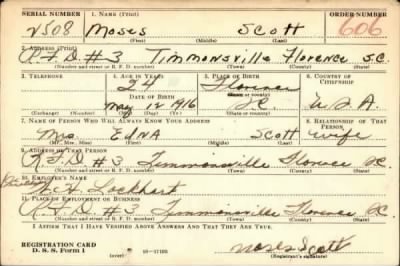 SERIAL NUMBER 1. NAME (Print) ORDER NUMBER
N508 Moses Scott 606
(First) (Middle) (Last)
2. ADDRESS (Print)
R.F.D. #3 Timmonsville Florence S.C.
(Number and street or R. F. D. number) (Town) (County) (State)
3. TELEPHONE 4. AGE IN YEARS 5. PLACE OF BIRTH 6. COUNTRY OF CITIZENSHIP
24 Florence
DATE OF BIRTH (Town or county)
May 12 1916 SC U.S.A.
(Exchange) (Number) (Mo.) (Day) (Yr.) (State or country)
7. NAME OF PERSON WHO WILL ALWAYS KNOW YOUR ADDRESS 8. RELATIONSHIP OF THAT PERSON
Mrs. Edna Scott wife
(Mr., Mrs., Miss) (First) (Middle) (Last)
9. ADDRESS OF THAT PERSON
R.F.D. #3 Timmonsville Florence SC
(Number and street or R. F. D. number) (Town) (County) (State)
10. EMPLOYER'S NAME
Lockhart
11. PLACE OF EMPLOYMENT OR BUSINESS
R.F.D. #3 Timmonsville Florence SC
(Number and street or R. F. D. number) (Town) (County) (State)
I AFFIRM THAT I HAVE VERIFIED ABOVE ANSWERS AND THAT THEY ARE TRUE.
REGISTRATION CARD
D. S. S. Form 1 (over) 16-17105 Moses Scott
(Registrant's signature)